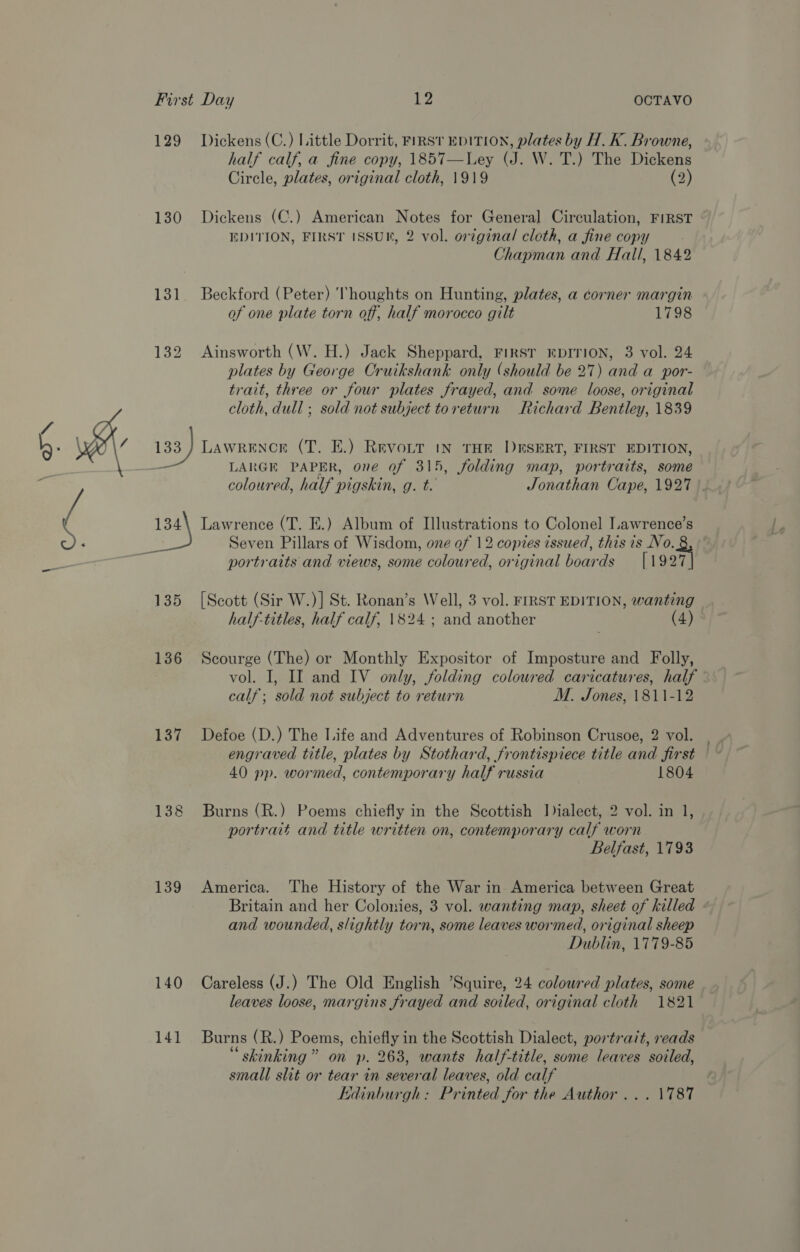 First Day 12 OCTAVO
129 Dickens (C.) Little Dorrit, FIRST EDITION, plates by H. K. Browne,
half calf, a fine copy, 1857—Ley (J. W. T.) The Dickens
Circle, plates, original cloth, 1919 (2)
130 Dickens (C.) American Notes for General Circulation, FIRST
EDITION, FIRST ISSUE, 2 vol. original cloth, a fine copy
Chapman and Hall, 1842
131 Beckford (Peter) Thoughts on Hunting, plates, a corner margin
of one plate torn off, half morocco gilt 1798
132 Ainsworth (W. H.) Jack Sheppard, FIRST EDITION, 3 vol. 24
plates by George Cruikshank only (should be 27) and a por-
trait, three or four plates frayed, and some loose, original
cloth, dull; sold not subject to return Richard Bentley, 1839
133 LAWRENCE (T. E.) REVOLT IN THE DESERT, FIRST EDITION,
LARGE PAPER, one of 315, folding map, portraits, some
coloured, half pigskin, g. t. Jonathan Cape, 1927
134 Lawrence (T. E.) Album of Illustrations to Colonel Lawrence's
Seven Pillars of Wisdom, one of 12 copies issued, this is No. 8,
portraits and views, some coloured, original boards [1927]
135 [Scott (Sir W.)] St. Ronan's Well, 3 vol. FIRST EDITION, wanting
half-titles, half calf, 1824; and another (4)
136 Scourge (The) or Monthly Expositor of Imposture and Folly,
vol. I, II and IV only, folding coloured caricatures, half
calf; sold not subject to return M. Jones, 1811-12
137 Defoe (D.) The Life and Adventures of Robinson Crusoe, 2 vol.
engraved title, plates by Stothard, frontispiece title and first
40 pp. wormed, contemporary half russia 1804
138 Burns (R.) Poems chiefly in the Scottish Dialect, 2 vol. in 1,
portrait and title written on, contemporary calf worn
Belfast, 1793
139 America. The History of the War in America between Great
Britain and her Colonies, 3 vol. wanting map, sheet of killed
and wounded, slightly torn, some leaves wormed, original sheep
Dublin, 1779-85
140 Careless (J.) The Old English 'Squire, 24 coloured plates, some
leaves loose, margins frayed and soiled, original cloth 1821
141 Burns (R.) Poems, chiefly in the Scottish Dialect, portrait, reads
"skinking" on p. 263, wants half-title, some leaves soiled,
small slit or tear in several leaves, old calf
Edinburgh: Printed for the Author ... 1787